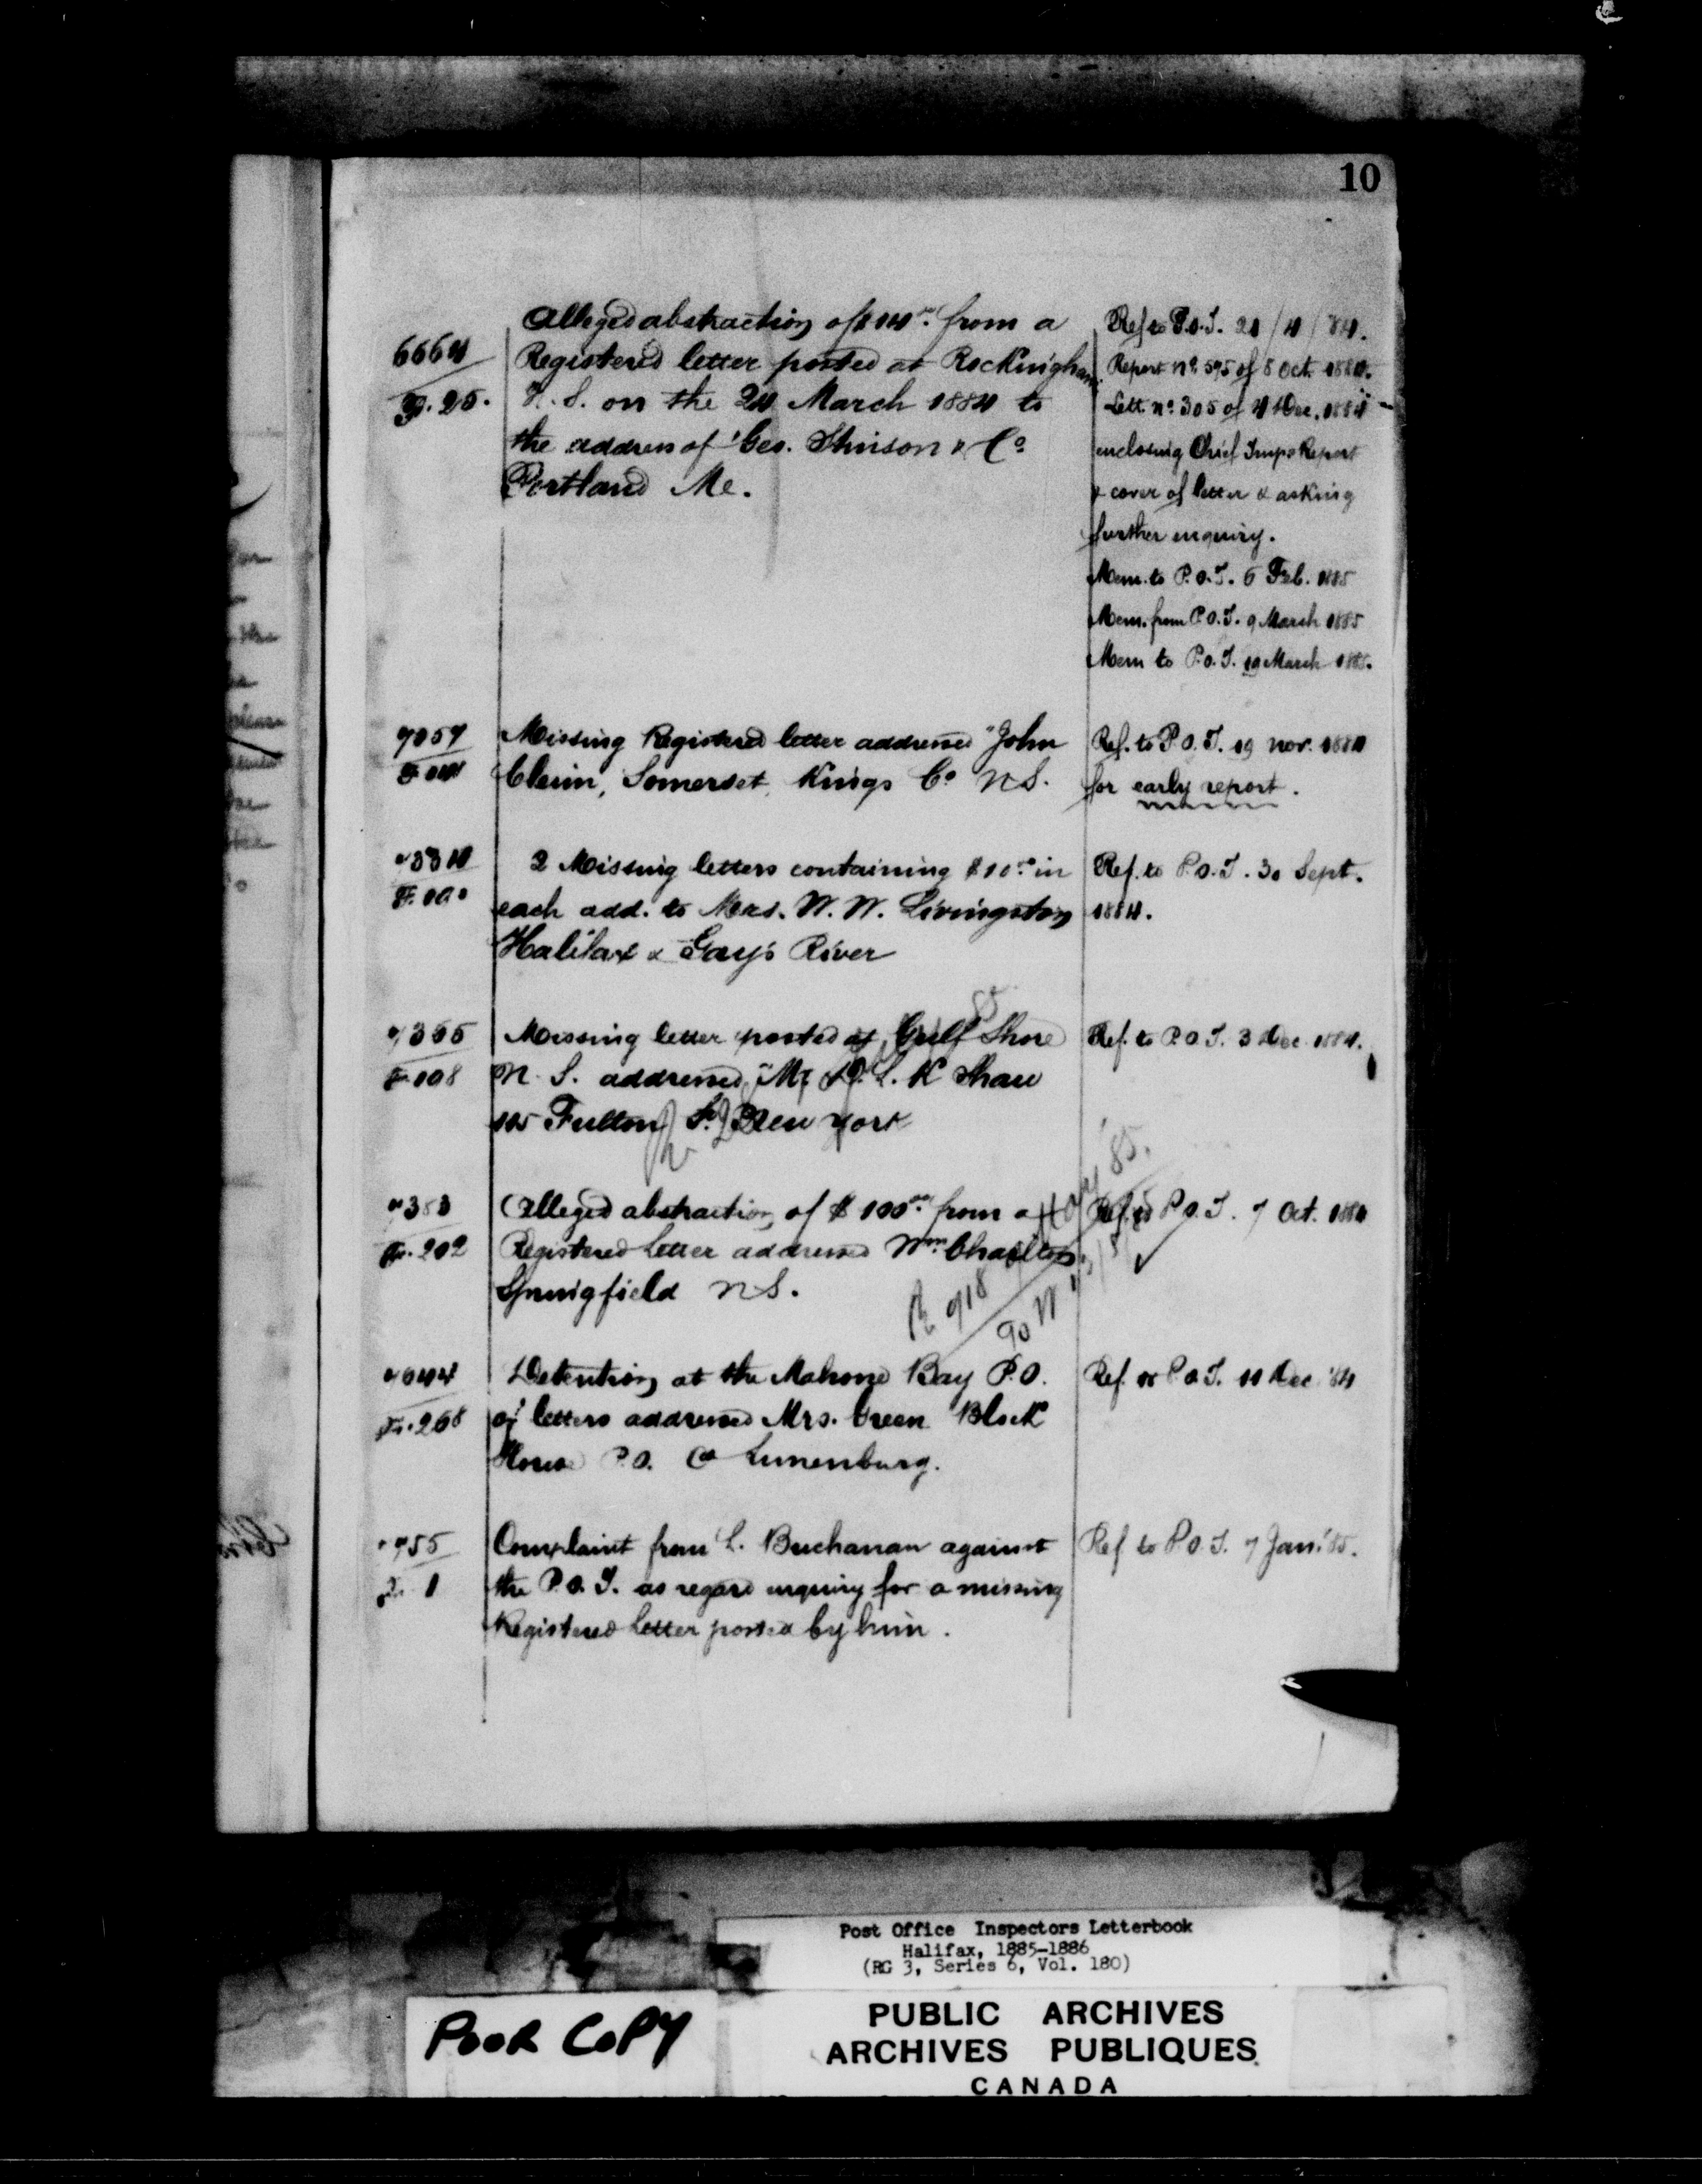 10
Alleged abstraction of $14.00 from a
6664
F. 25.
Registered letter posted at Rockingham
N. S. on the 24 March 1884 to
the address of Geo. Stinson & Co
Portland Me.
Ref to P.O.I. 21/4/84.
Report No. 595 of 8 Oct. 1884.
Lett. No. 305 of 4 Dec. 1884
enclosing Chief Insps Report
& cover of letter & asking
further enquiry.
Mem. to P.O.I. 6 Feb. 1885
Mem. from P.O.I. 9 March 1885
Mem to P.O.I. 19 March 1885.
7057
Missing Registered letter addressed "John
Somerset, Kings Co N.S.
Ref. to P.O.I. 19 Nov. 1884
for early report.
2 Missing letters containing $10.00 in
each add. to Mrs. W. W. Livingston
Halifax & Gay's River
Ref. to P.O.I. 30 Sept.
1884.
7355
F. 108
Missing letter posted at Gulf Shore
N. S. addressed "Mr L. K Shaw
115 Fulton St. New York
Ref. to P.O.I. 3 Dec. 1884.
7383
F. 202
Alleged abstraction of $100.00 from a
Registered Letter addressed Wm. Charlton
Springfield N.S.
Ref. to P.O.I. 7 Oct. 1884
R 918
85.
F. 268
Detention at the Mahone Bay P.O.
of letters addressed Mrs. Green Block
House P.O. Co Lunenburg.
Ref. to P.O.I. 11 Dec '84
755
1
Complaint from L. Buchanan against
the P.O.I. as regard enquiry for a missing
Registered letter posted by him.
Ref to P.O.I. 7 Jan. '85.
Post Office Inspectors Letterbook
Halifax, 1885-1886
(RG 3, Series 6, Vol. 180)
POOR COPY
PUBLIC ARCHIVES
ARCHIVES PUBLIQUES
CANADA